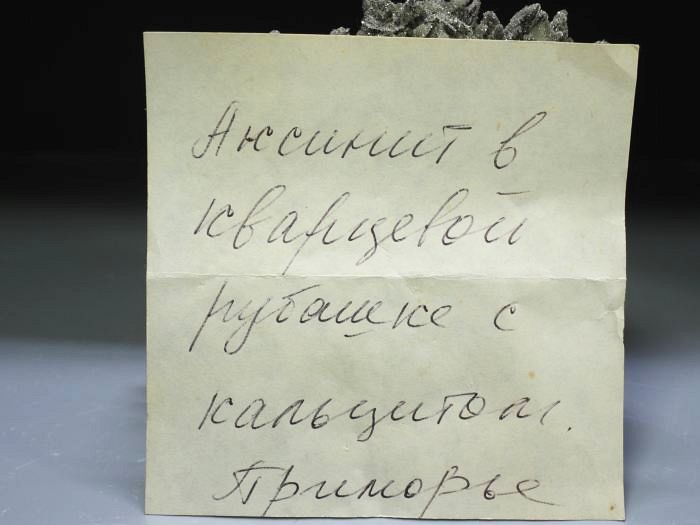 Аксинит в
кварцевой
рубашке с
кальцитом.
Приморье